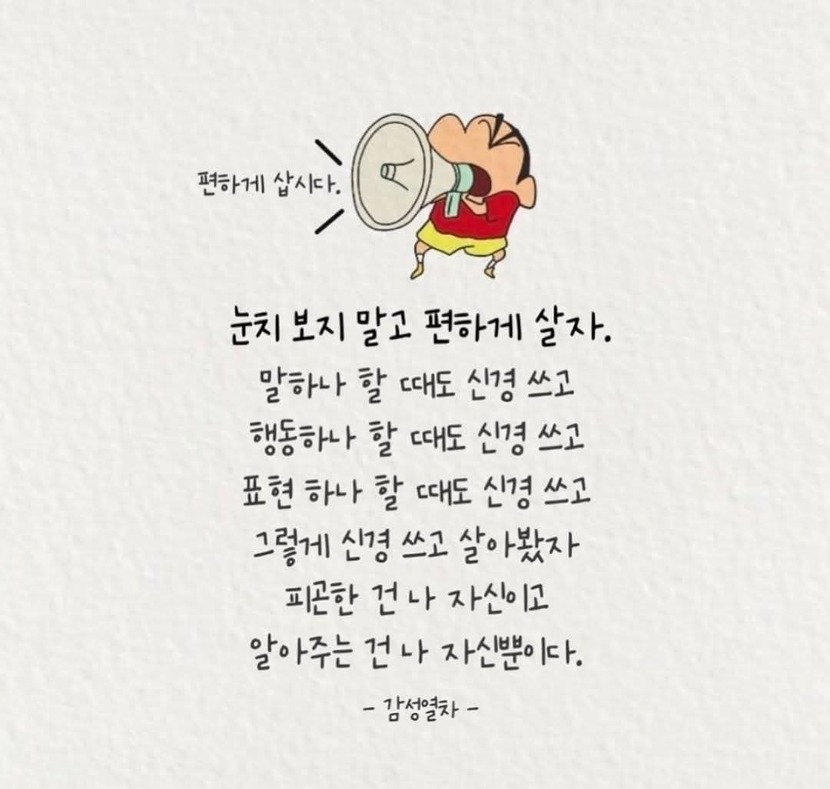 편하게 삽시다.
눈치 보지 말고 편하게 살자.
말하나 할 때도 신경 쓰고
행동하나 할 때도 신경 쓰고
표현 하나 할 때도 신경 쓰고
그렇게 신경 쓰고 살아봤자
피곤한 건 나 자신이고
알아주는 건 나 자신뿐이다.
- 감성열차 -